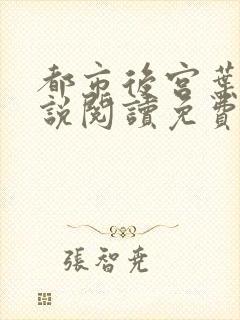 都市後宮葉
説閱讀免費
張智堯